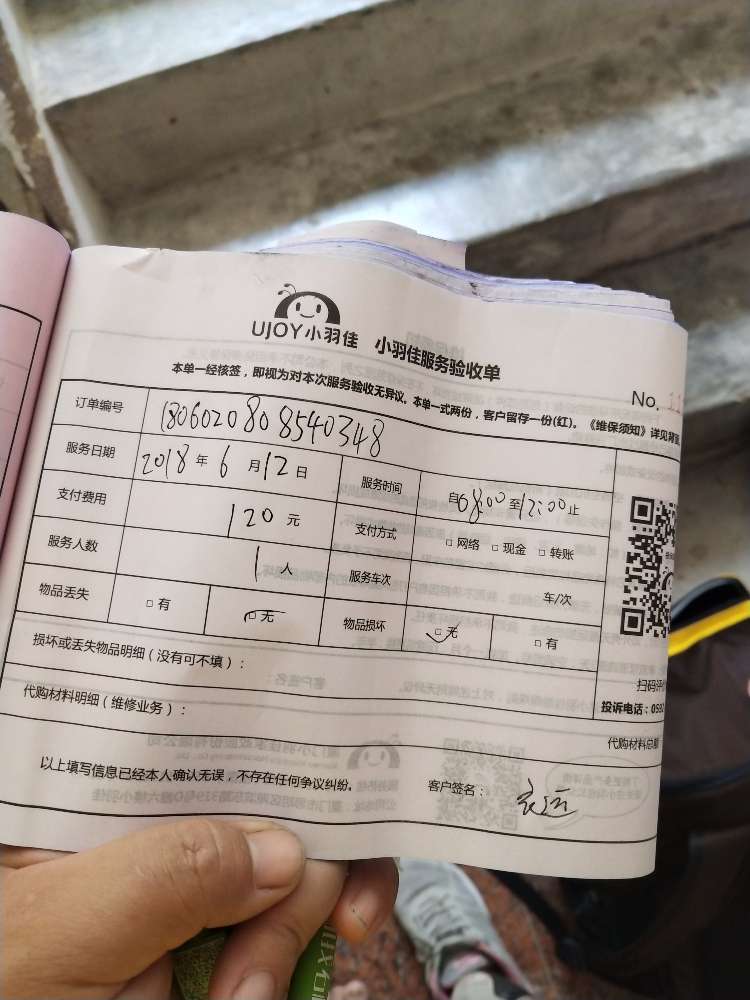 UJOY小羽佳 小羽佳服务验收单
No.
本单一经核签，即视为对本次服务验收无异议。本单一式两份，客户留存一份(红)。《维保须知》详见背面
订单编号 1806020808540348
服务日期 2018年6月12日 服务时间 自08:00至12:00止
支付费用 120元 支付方式 □网络 □现金 □转账
服务人数 1人 服务车次 车/次
物品丢失 □有 □无 物品损坏 □无 □有
损坏或丢失物品明细（没有可不填）：
扫码评
代购材料明细（维修业务）：
投诉电话：0592
代购材料总额
以上填写信息已经本人确认无误，不存在任何争议纠纷。
客户签名：